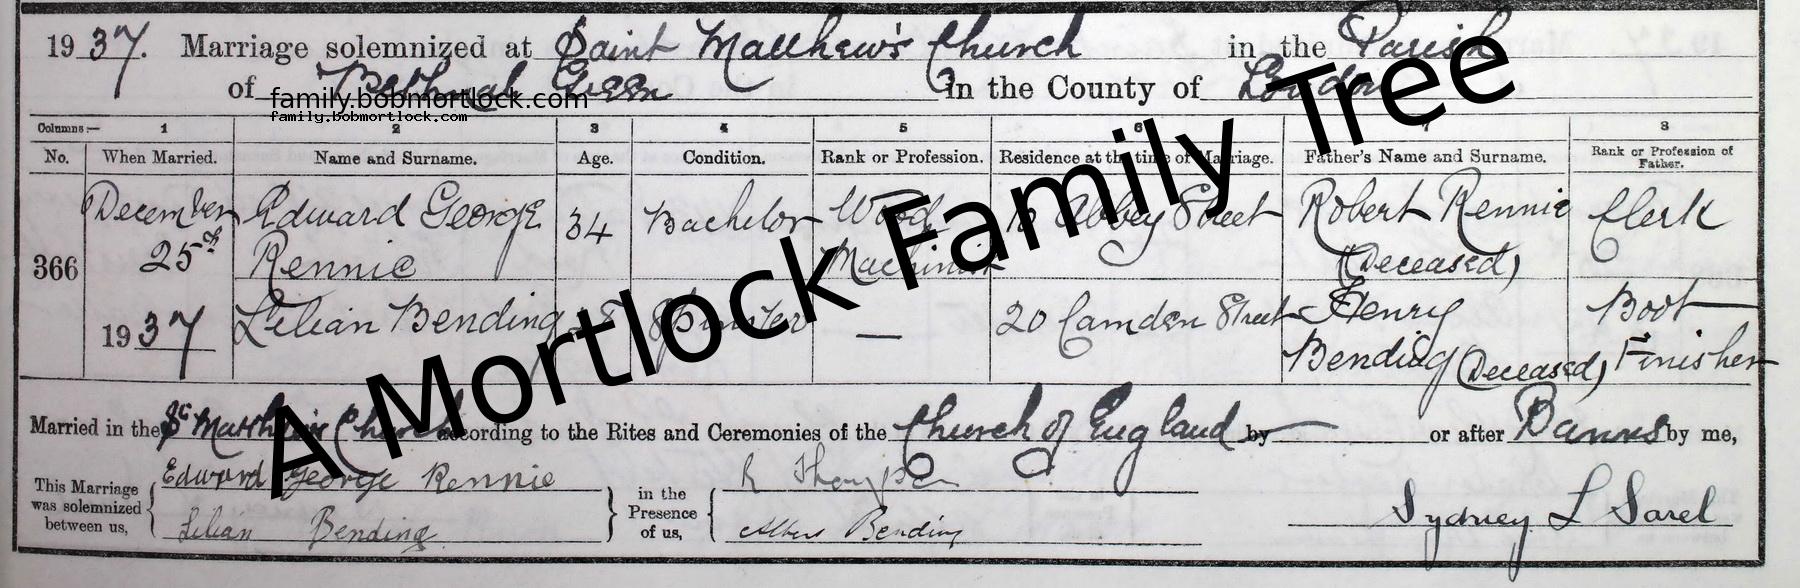 1937. Marriage solemnized at Saint Matthew's Church in the Parish
of Bethnal Green in the County of London
family.bobmortlock.com
family.bobmortlock.com
Columns:— 1 2 3 4 5 6 7 8
No. When Married. Name and Surname. Age. Condition. Rank or Profession. Residence at the time of Marriage. Father's Name and Surname. Rank or Profession of Father.
366 December 25th 1937 Edward George Rennie 34 Bachelor Wood Machinist Abbey Street Robert Rennie (Deceased) Clerk
Lilian Bending Spinster — 20 Camden Street Henry Bending (Deceased) Boot Finisher
A Mortlock Family Tree
Married in the St Matthew's Church according to the Rites and Ceremonies of the Church of England by — or after Banns by me,
This Marriage was solemnized between us, Edward George Rennie
Lilian Bending
in the Presence of us, Thompson
Albert Bending
Sydney L Sarel